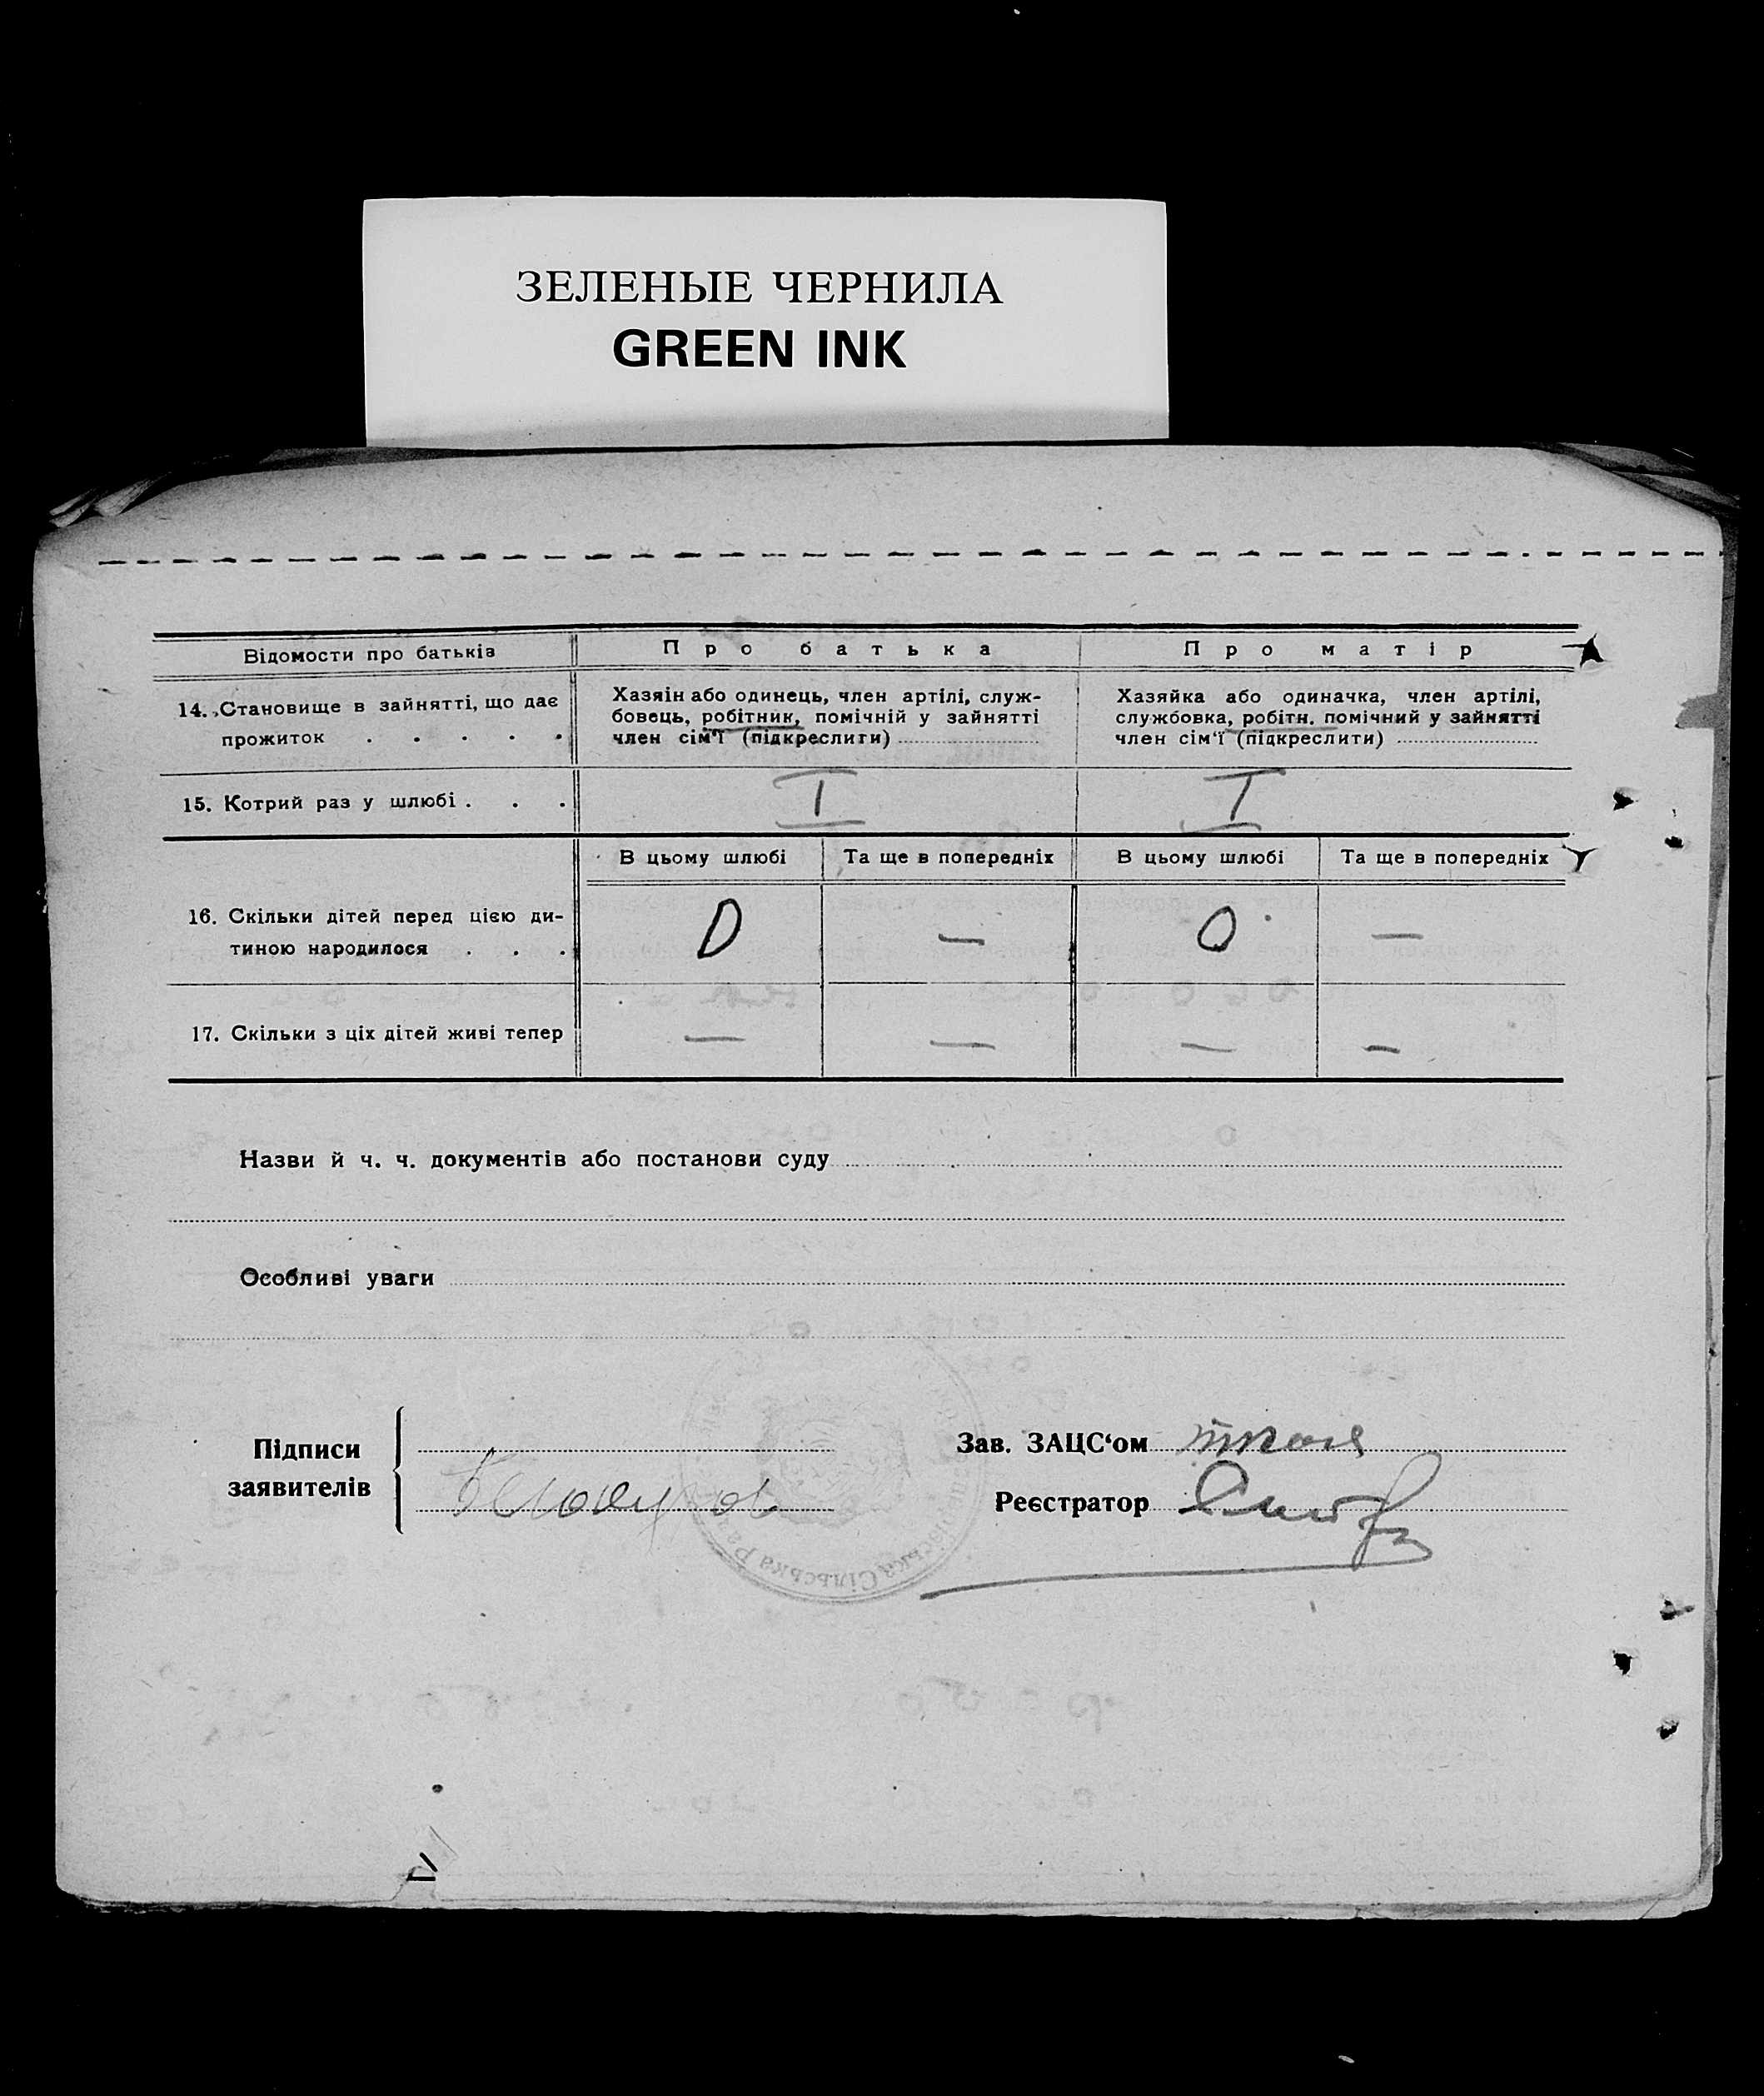 ЗЕЛЕНЫЕ ЧЕРНИЛА
GREEN INK
Відомости про батьків
Про батька
Про матір
14. Становище в зайнятті, що дає
прожиток . . . . .
Хазяін або одинець, член артілі, служ-
бовець, робітник, помічній у зайнятті
член сім'ї (підкреслити)
Хазяйка або одиначка, член артілі,
службовка, робітн. помічний у зайнятті
член сім'ї (підкреслити)
15. Котрий раз у шлюбі . . .
I
I
В цьому шлюбі
Та ще в попередніх
В цьому шлюбі
Та ще в попередніх
16. Скільки дітей перед цією ди-
тиною народилося . . .
0
—
0
—
17. Скільки з ціх дітей живі тепер
—
—
—
—
Назви й ч. ч. документів або постанови суду
Особливі уваги
Підписи
заявителів
Зав. ЗАЦС'ом
Реєстратор
Сільська